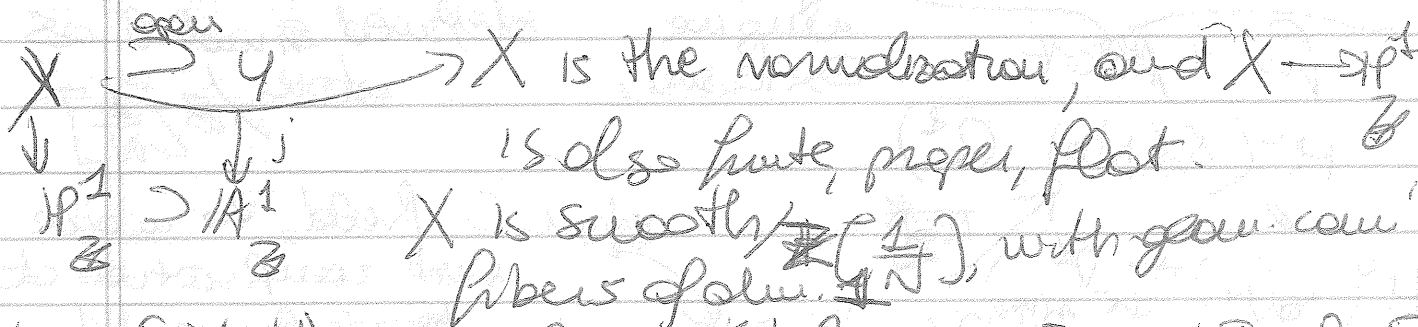 open
X ⊃ Y → X is the normalization, and X → ℙ¹_ℤ
↓ ↓ j is also finite, proper, flat.
ℙ¹_ℤ ⊃ 𝔸¹_ℤ X is smooth/ℤ[1/N], with geom. conn.
fibers of dim. 1